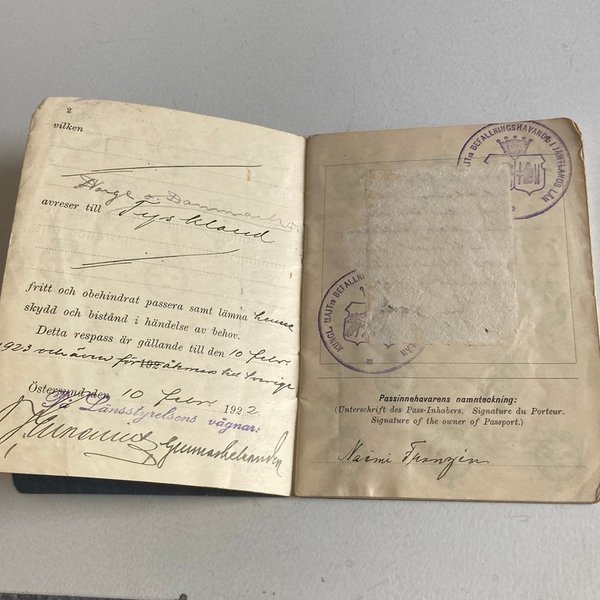 2
vilken
Norge o Danmark
avreser till Tyskland
fritt och obehindrat passera samt lämna henne
skydd och bistånd i händelse av behov.
Detta respass är gällande till den 10 febr.
1923 och även för 192 till Sverige
Östersund den 10 febr 1922.
Länsstyrelsens vägnar:
KUNGL. MAJ:TS BEFALLNINGSHAVANDE I JÄMTLANDS LÄN
KUNGL. MAJ:TS BEFALLNINGSHAVANDE LÄN
Passinnehavarens namnteckning:
(Unterschrift des Pass-Inhabers. Signature du Porteur.
Signature of the owner of Passport.)
Naëmi Franzén